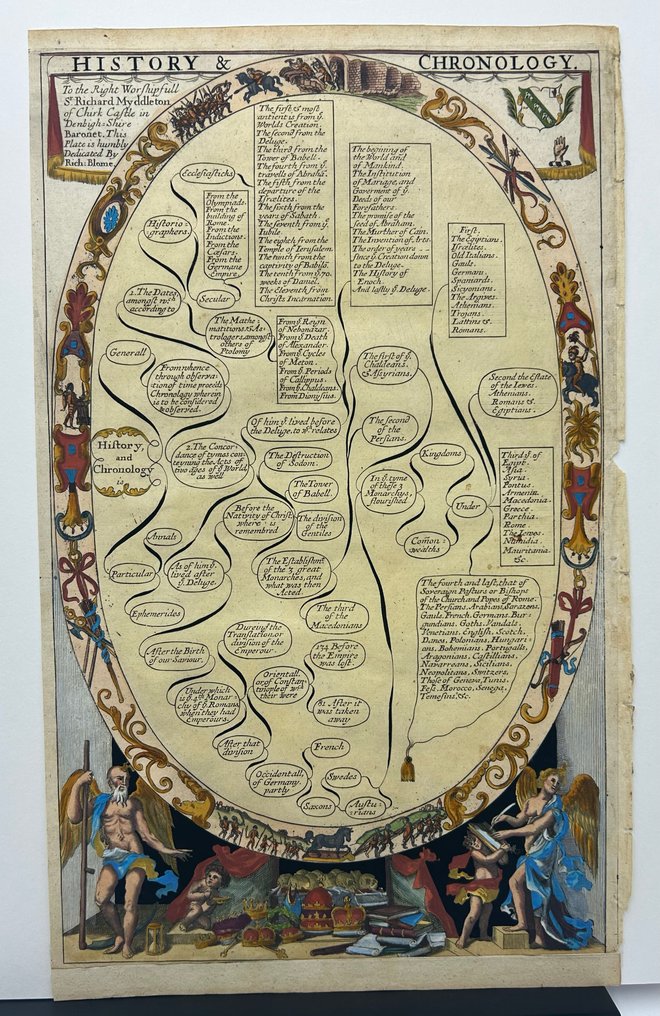 HISTORY & CHRONOLOGY.
To the Right Worshipfull
Sr. Richard Myddleton
of Chirk Castle in
Denbigh=Shire
Baronet. This
Plate is humbly
Dedicated By
Rich: Blome.
History,
and
Chronology
is
Generall
From whence
through observa=
=tion of time proceeds
Chronology wherein
is to be considered
& observed.
1. The Dates
amongst wch
according to
Historio=
graphers,
Ecclesiasticks
The first & most
antient is from ye.
Worlds Creation.
The second from the
Deluge.
The third from the
Tower of Babell.
The fourth from ye.
travells of Abrahā.
The fifth from the
departure of the
Israelites.
The sixth from the
years of Sabath.
The seventh from ye.
Iubile.
The eighth from the
Temple of Ierusalem.
The tenth from the
captivity of Babilō.
The tenth from ye. 70.
weeks of Daniel.
The Eleventh from
Christs Incarnation.
Secular
From the
Olympiads.
From the
building of
Rome.
From the
Indictions.
From the
Cæsars.
From the
Germane
Empire.
The Mathe=
matitions, & As=
trologers, amongst
others of
Ptolomy
From ye. Reign
of Nebonazar.
From ye. Death
of Alexander.
From ye. Cycles
of Meton.
From ye. Periods
of Callippus.
From ye. Chaldeans.
From Dionysius.
2. The Concor=
dance of tymes con=
teyning the Acts of
two Ages of ye. World,
as well
Of him yt. lived before
the Deluge, to wt. relates
The begining of
the World and
of Mankind.
The Institution
of Mariage, and
Goverment of ye.
Deeds of our
Forefathers.
The promise of the
seed of Abraham.
The Murther of Cain.
The Invention of Arts.
The order of years
since ye. Creation down
to the Deluge.
The History of
Enoch.
And lastly ye. Deluge.
As of him yt.
lived after
ye. Deluge.
Before the
Nativity of Christ
where is
remembred
The Destruction
of Sodom.
The Tower
of Babell.
The division
of the
Gentiles
The Establishmt.
of the 3 great
Monarches, and
what was then
Acted.
The first of ye.
Chaldeans,
& Assyrians.
The second
of the
Persians.
The third
of the
Macedonians
In ye. tyme
of these 3
Monarchys,
flourished
Kingdoms
First,
The Egiptians.
Israelites.
Old Italians.
Gauls.
Germans.
Spaniards.
Sicyonians.
The Argives.
Athenians.
Trojans.
Lattins &
Romans.
Comon=
=wealths
Under
Second the Estate
of the Iewes.
Athenians.
Romans &
Egiptians.
Third ye. of
Egipt.
Asia.
Syria.
Pontus.
Armenia.
Macedonia.
Greece.
Parthia.
Rome.
The Iewes.
Numidia.
Mauritania.
&c.
The fourth and last, that of
Soveraign Pastors or Bishops
of the Church and Popes of Rome.
The Persians, Arabians, Sarazens,
Gauls, French, Germans, Bur=
gundians, Goths, Vandals,
Venetians, English, Scotch,
Danes, Polonians, Hungari=
ons, Bohemians, Portugalls,
Arragonians, Castillians,
Navarreans, Sicilians,
Neopolitans, Switzers,
Those of Geneva, Tunis,
Fess, Morocco, Senega,
Temesins, &c.
After the Birth
of our Saviour,
Under which
is ye. 4th. Monar=
chy of ye. Romans
when they had
Emperours,
Dureing the
Translation, or
division of the
Emperour.
Orientall,
or of Constan=
tinople of wch
their were
174 Before
the Empire
was lost.
81 After it
was taken
away
After that
division
Occidentall,
of Germany,
partly
French
Swedes
Saxons
Austu=
rians
Particular
Annals
Ephemerides